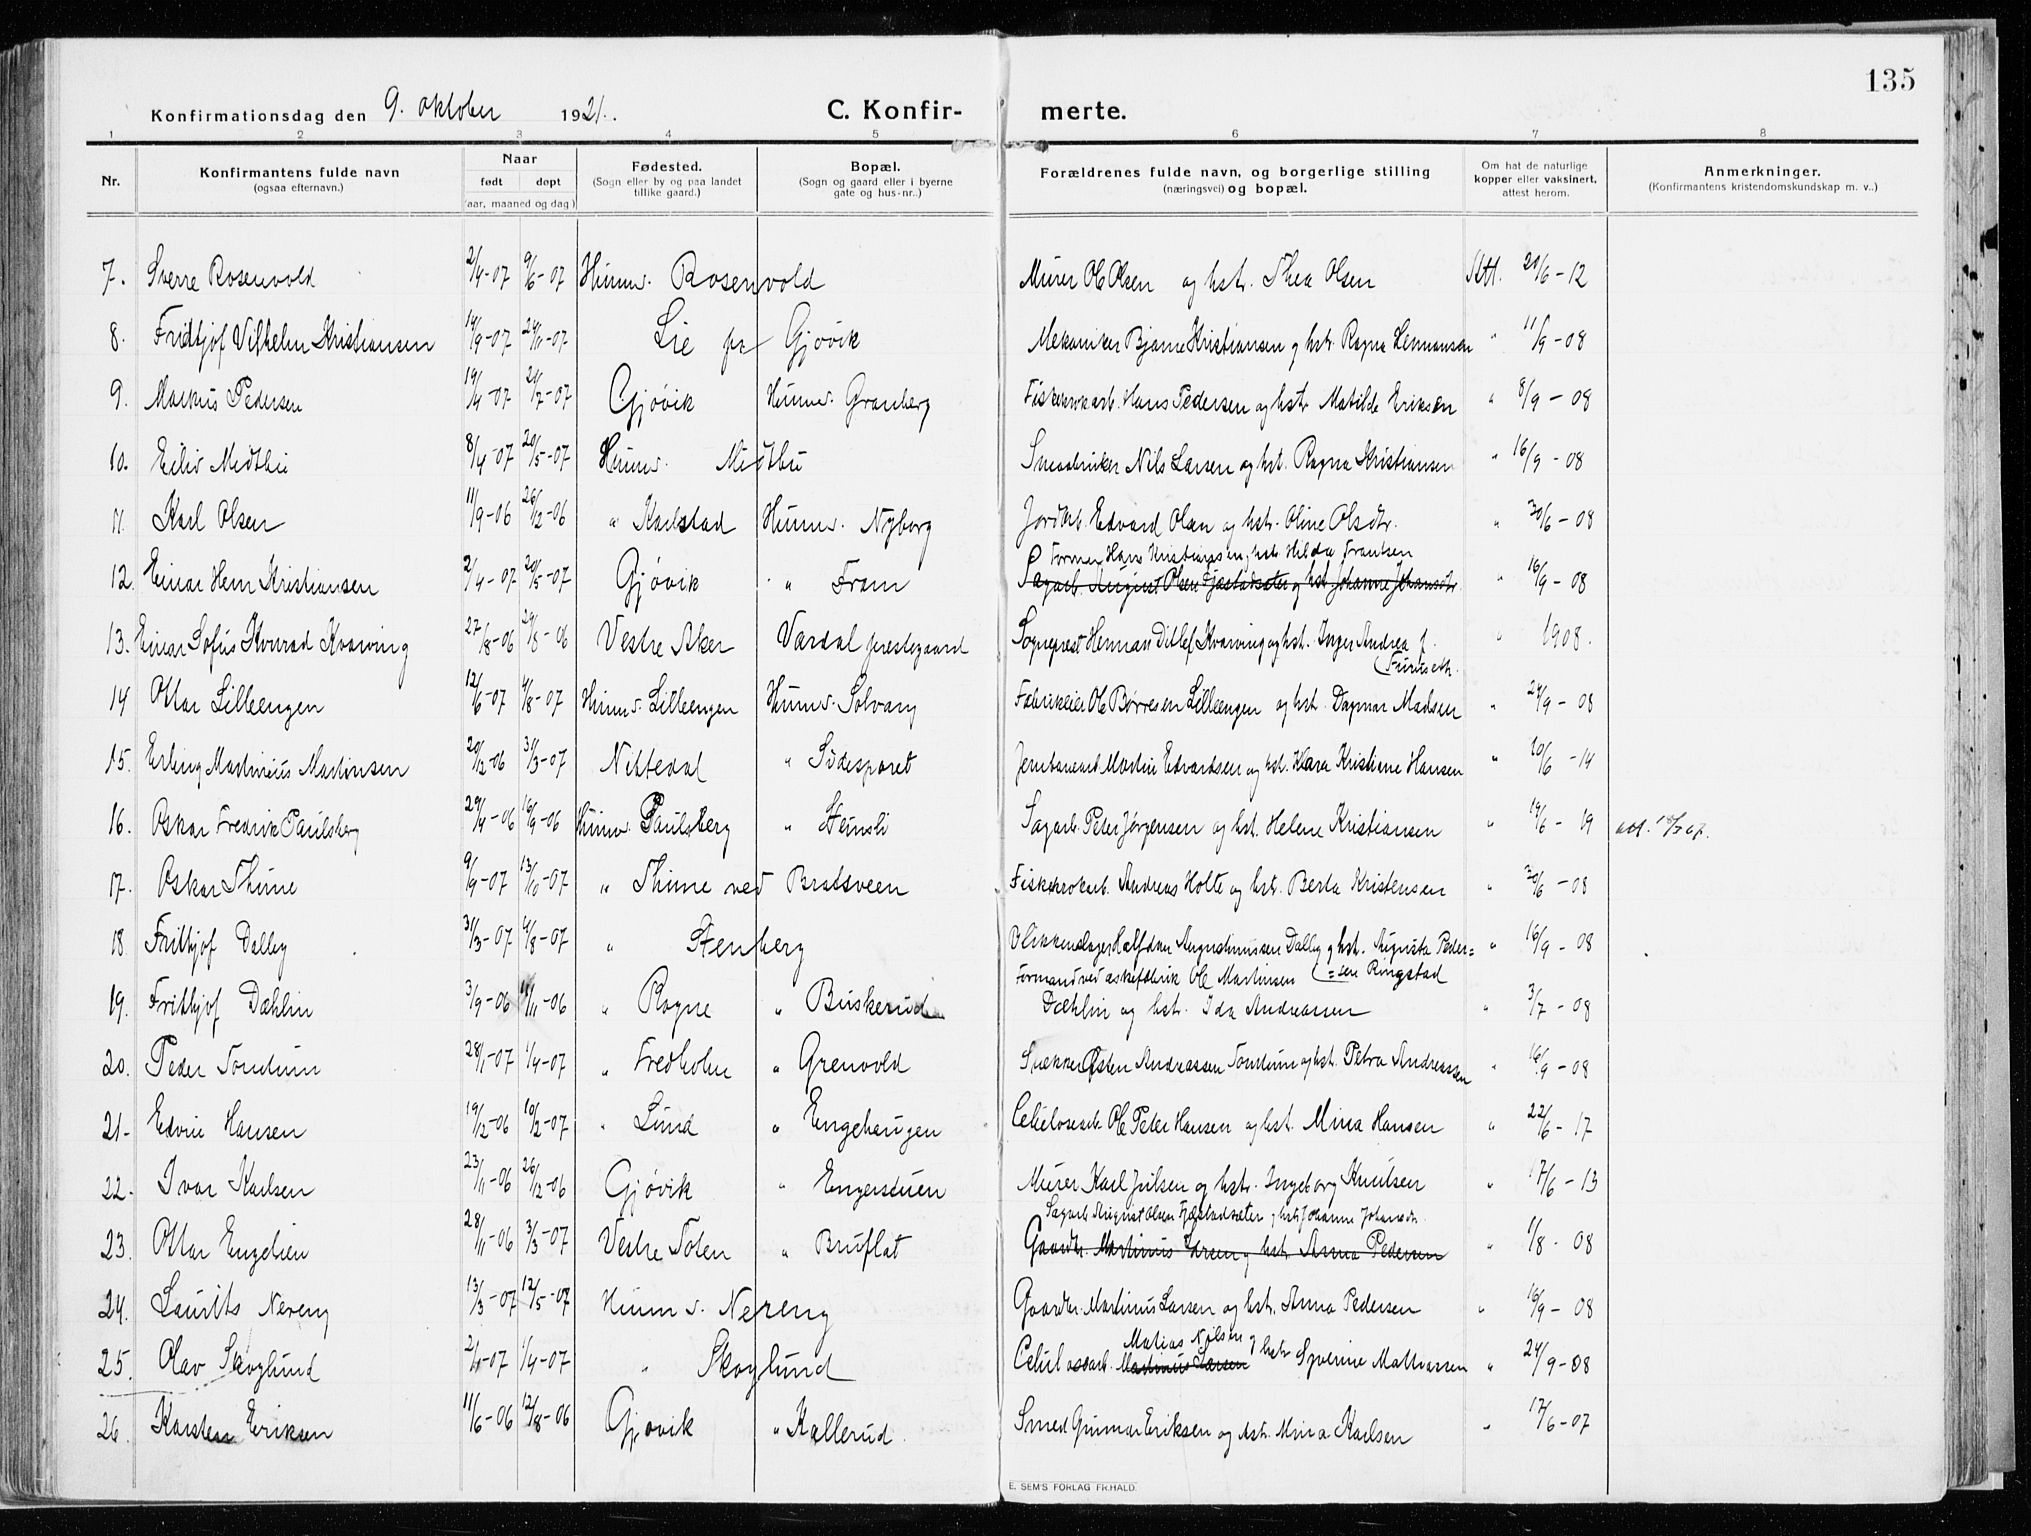 135
Konfirmationsdag den 9. oktober 1921. C. Konfir- merte.
1 2 3 4 5 6 7 8
Nr. Konfirmantens fulde navn (ogsaa efternavn.) Naar født døpt (aar, maaned og dag) Fødested. (Sogn eller by og paa landet tillike gaard.) Bopæl. (Sogn og gaard eller i byerne gate og hus-nr..) Forældrenes fulde navn, og borgerlige stilling (næringsvei) og bopæl. Om hat de naturlige kopper eller vaksinert, attest herom. Anmerkninger. (Konfirmantens kristendomskundskap m. v..)
7. Sverre Rosenvold 2/4-07 9/6-07 Hunns. Rosenvold Murer Ole Olsen og hst. Thea Olsen Att. 20/6-12
8. Fridtjof Vilhelm Kristiansen 14/9-07 24/11-07 Lie pr Gjøvik Mekaniker Bjarne Kristiansen og hst. Ragna " 11/9-08
9. Markus Pedersen 19/4-07 21/7-07 Gjøvik Hunns. Granberg Fiskekrokarb. Hans Pedersen og hst. Matilde Eriksen " 8/9-08
10. Eiliv Medtlie 8/4-07 20/5-07 Hunns. Nils Larsen og hst. Ragna Kristiansen " 16/9-08
11. Karl Olsen 11/9-06 26/12-06 " Karlstad Hunns. Nyborg Jordarb. Edvard Olsen og hst. Oline Olsdtr. " 30/6-08
Former Hans Kristiansen, hst. Hilda Frantsen
12. Einar Hem Kristiansen 2/4-07 20/5-07 Gjøvik " Fram Sagarb. August Olsen Fjæstadsæter og hst. Johanne Johansdtr. " 16/9-08
13. Einar Sofus Konrad Kvarving 27/8-06 29/8-06 Vestre Aker Vardal prestegaard Sogneprest Herman Ditlef Kvarving og hst. Inger Andrea f. " 1908.
(Furuseth.
14 Ottar Lilleengen 12/6-07 4/8-07 Hunns. Lilleengen Hunns. Solvang Fabrikeier Ole Børresen Lilleengen og hst. Dagmar Madsen " 24/9-08
15. Erling Martinius Martinsen 20/12-06 31/3-07 Nittedal " Sødesporet Jernbanearb. Martin Edvardsen og hst. Klara Kristiane Hansen " 10/6-14
16. Oskar Fredrik Paulsberg 29/4-06 16/9-06 Hunns. Paulsberg " Stensli Sagarb. Peter Jørgensen og hst. Helene Kristiansen " 19/6-19 att. 18/3 67.
17. Oskar Thune 9/9-07 13/10-07 " Thune ved Bratsveen Fiskekrokarb. Andreas Holte og hst. Berta Kristensen " 30/6-08
18 Frithjof Dalby 31/3-07 4/8-07 " Stenberg Blikkenslager Halfdan Augustinussen Dalby og hst. Augusta Peder= " 16/9-08
Formand ved askefabrik Ole Martinsen (=sen Ringstad
19. Frithjof Dæhlin 3/9-06 11/11-06 " Rogne " Buskerud Dæhlin og hst. Ida Andreassen " 3/7-08
20. Peder Tondum 28/1-07 1/4-07 " Fredholm " Grenvold Snekker Østen Andreassen Tondum og hst. Petra Andreassen " 16/9-08
21- Edvin Hansen 19/12-06 10/2-07 " Lund " Engehaugen Celulosearb. Ole Peter Hansen og hst. Mina Hansen " 22/6-17
22. Ivar Karlsen 23/11-06 26/12-06 Gjøvik " Engerstuen Murer Karl Julsen og hst. Ingeborg Knutsen " 17/6-13
Sagarb. August Olsen Fjæstadsæter og hst. Johanne Johansdtr.
23. Ottar Engelien 28/11-06 3/3-07 Vestre Toten " Bruflat Gaardbr. Martinus Larsen og hst. Anna Pedersen " 1/8-08
24. Laurits Nereng 13/3-07 12/5-07 Hunns. Nereng Gaardbr. Martinus Larsen og hst. Anna Pedersen " 16/9-08
Matias Nilsen
25. Olav Skoglund 2/1-07 1/4-07 " Skoglund Celulosearb. Martinus Larsen og hst. Mathiassen " 24/9-08
26. Karsten Eriksen 11/6-06 12/8-06 Gjøvik " Kallerud Smed Gunnar Eriksen og hst. Mina Karlsen " 17/6-07
E. SEM'S FORLAG FR.HALD.